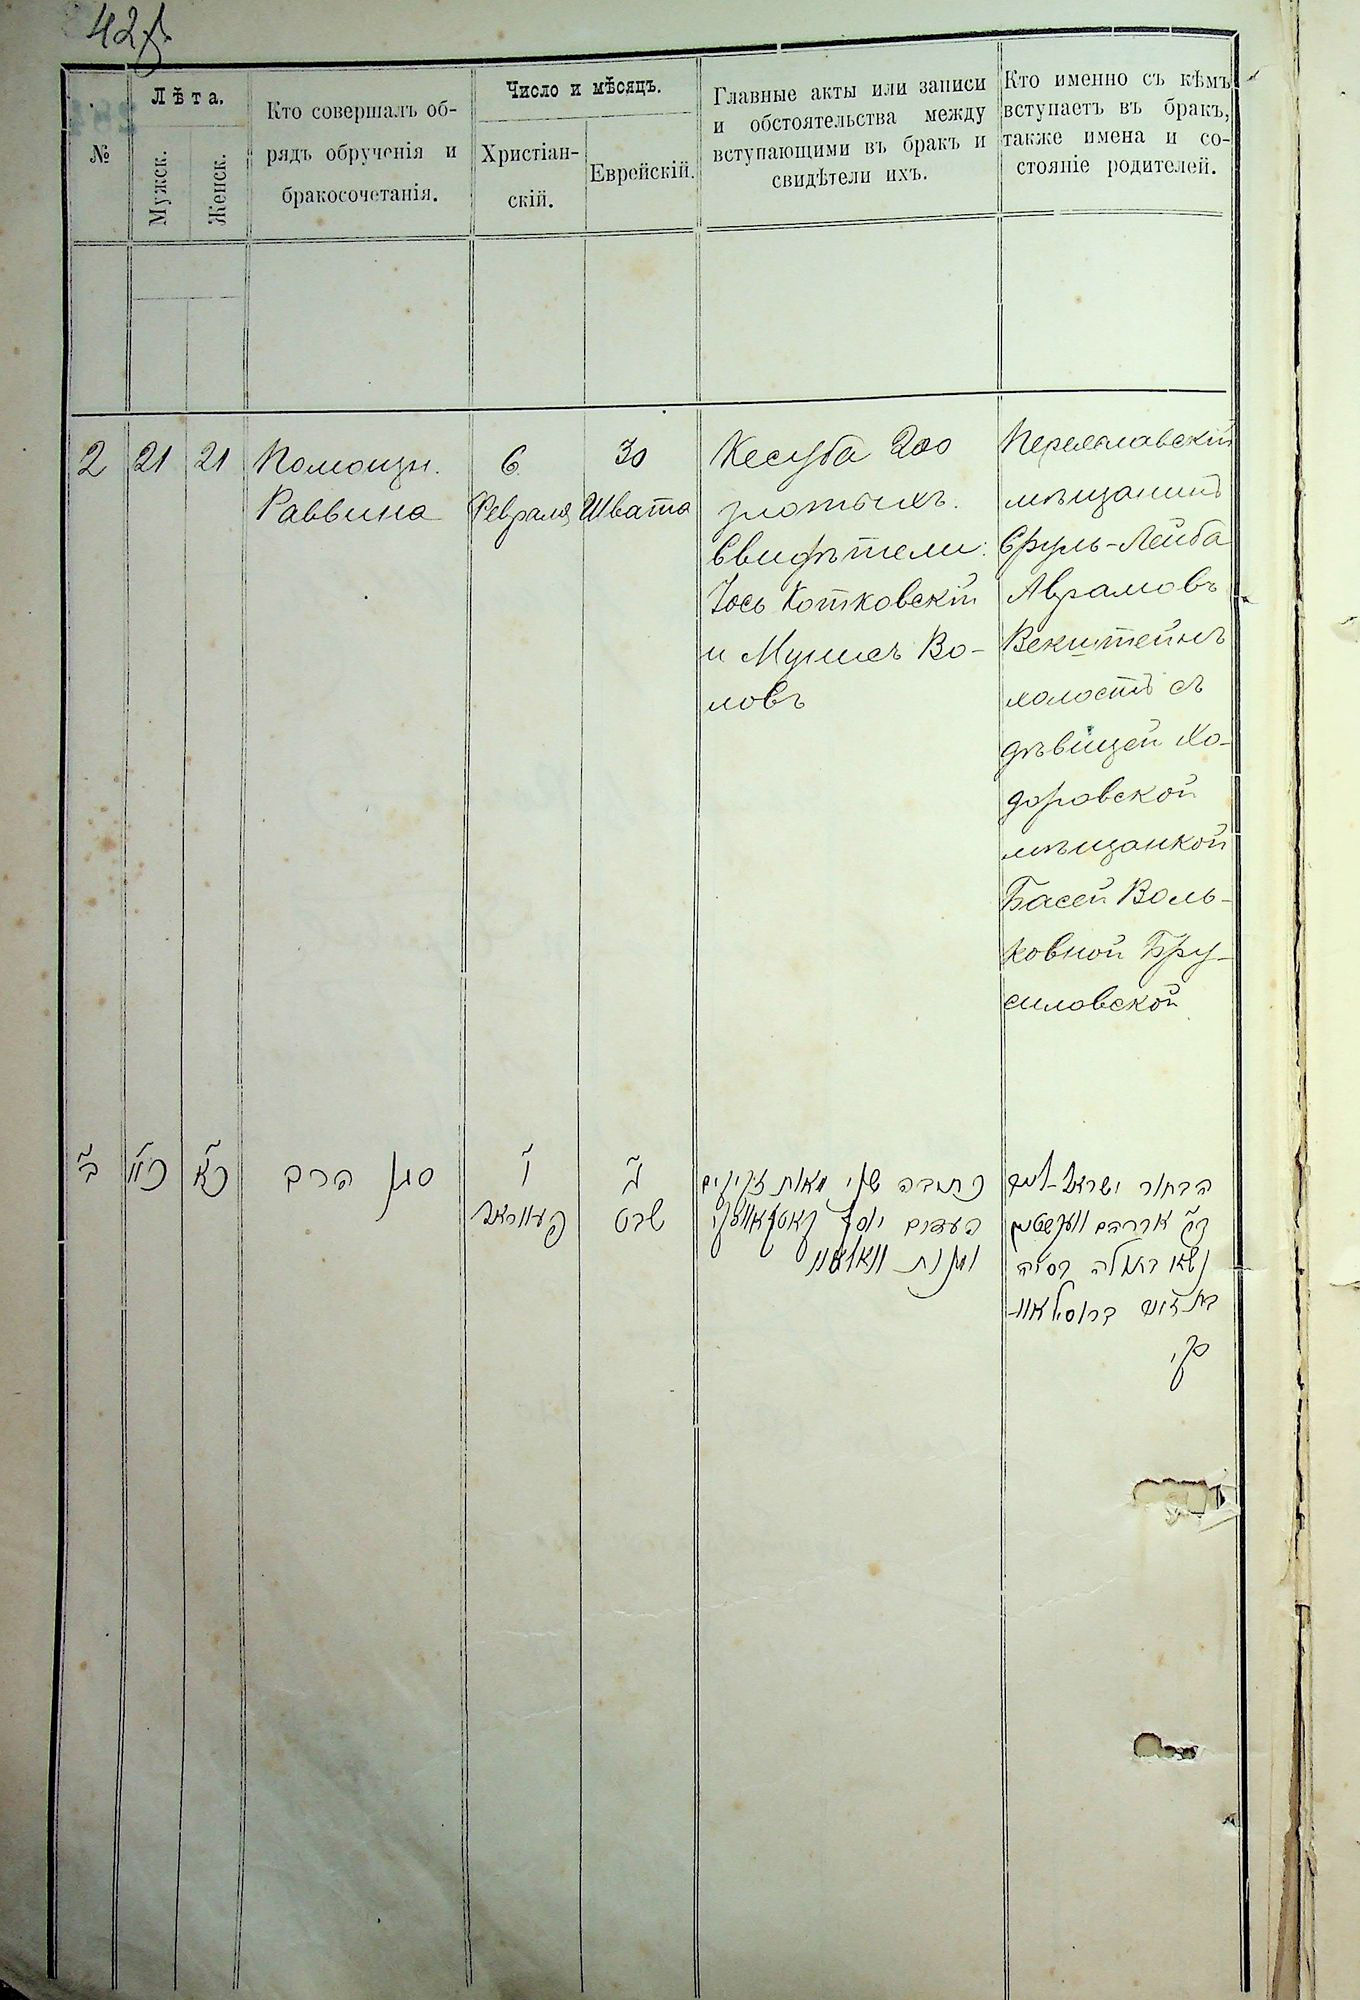 42
№
Лѣта.
Мужск.
Женск.
Кто совершалъ об-
рядъ обрученія и
бракосочетанія.
Число и мѣсяцъ.
Христіан-
скій.
Еврейскій.
Главные акты или записи
и обстоятельства между
вступающими въ бракъ и
свидѣтели ихъ.
Кто именно съ кѣмъ
вступаетъ въ бракъ,
также имена и со-
стояніе родителей.
2
21
21
Помощн.
Раввина
6
Февраля
30
Швата
Кесуба 200
злотыхъ.
Свидѣтели:
Іось Котковскій
и Мунисъ Во-
ловъ
Переяславскій
мѣщанинъ
Сруль-Лейба
Аврамовъ
Векштейнъ
холостъ съ
дѣвицей Хо-
доровской
мѣщанкой
Басей Воль-
ковной Бру-
силовской
ב
כא
כא
סגן הרב
ו
פעווראל
ל
שבט
כתובה שני מאות זקוקים
העדים יוסף קאטקאווסקי
הבחור ישראל
אברהם וועקשטיין
נשא בתולה בסיה
בת זאב ברוסילאוו-
סקי